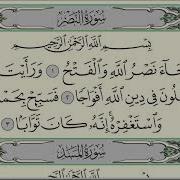 سُورَةُ النَّصْرِ
بِسْمِ اللَّهِ الرَّحْمَٰنِ الرَّحِيمِ
جَآءَ نَصْرُ اللَّهِ وَالْفَتْحُ ١ وَرَأَيْتَ
لُونَ فِى دِينِ اللَّهِ أَفْوَاجًا ٢ فَسَبِّحْ بِحَمْ
وَاسْتَغْفِرْهُ إِنَّهُۥ كَانَ تَوَّابًا ٣
سُورَةُ المَسَدِ
اللَّهِ الرَّحْمَٰنِ